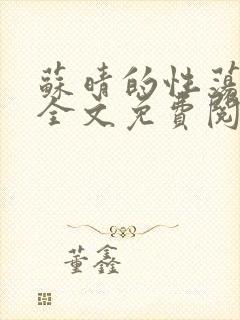 蘇晴的性蕩
全文免費閱
董鑫